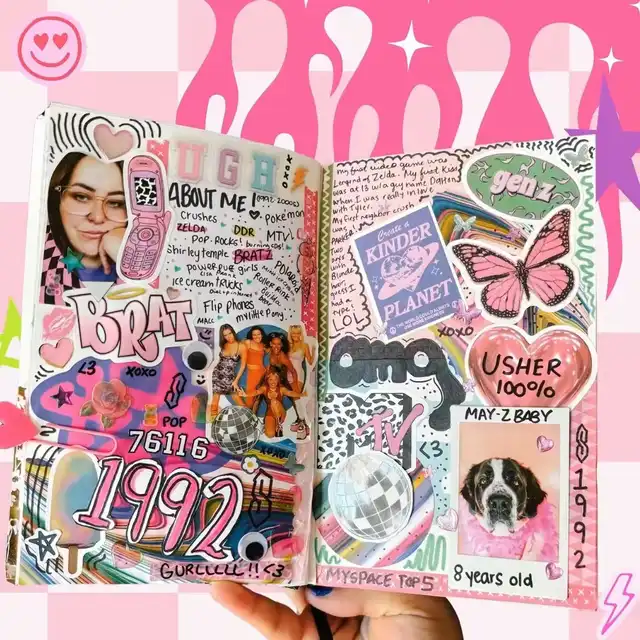 UGH
xoxo
ABOUT ME!
(1992, 2000s)
crushes
pokémon
ZELDA
DDR
MTV
POP-ROCKS!
burning cds!
shirley temple
BRATZ
powerpuff girls
Polaroid
ice cream trucks
Roller Rink
Golden
Flip Phones
mylittlePony
MALL
BRAT
<3
xoxo
POP
76116
1992
XOXO!
GURLLLLL!! <3
my first video game was
Legend of Zelda. My first Kiss
was at 13 w/a guy named Dalton
when I was really in love
with Tyler.
My first neighbor crush
had a
type!
LOL
genz
Create a
KINDER
PLANET
XOXO
omg
USHER
100%
TV
<3
MAY-Z BABY
8 years old
1992
MYSPACE TOP 5